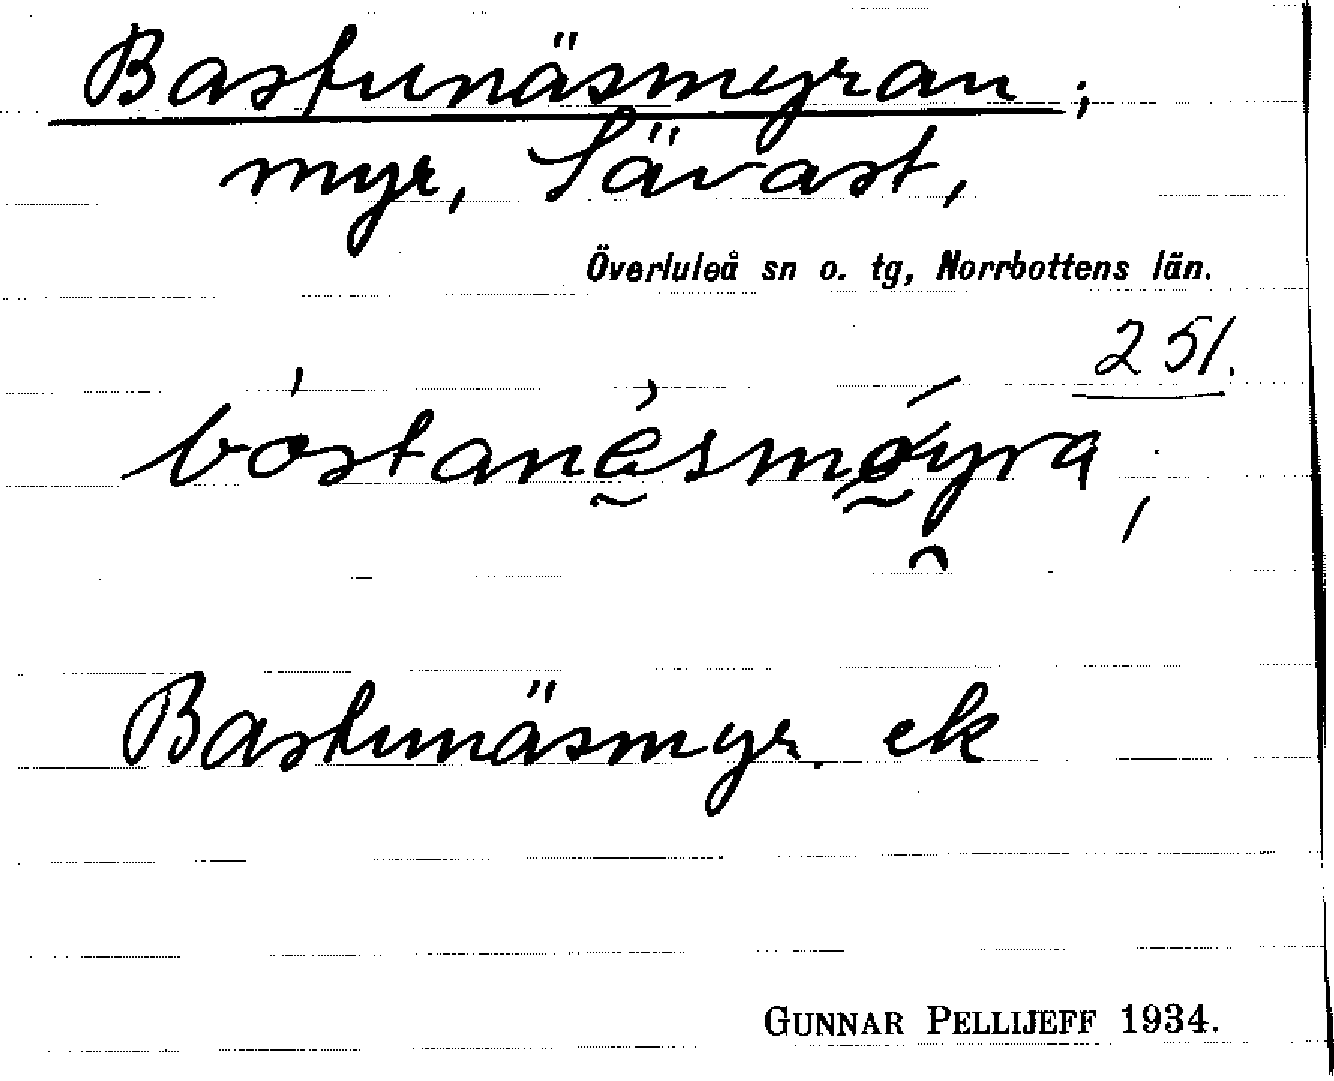 Bastunäsmyran;
myr, Sävast,
Överluleå sn o. tg, Norrbottens län.
251.
Bastunäsmyr. ek
GUNNAR PELLIJEFF 1934.